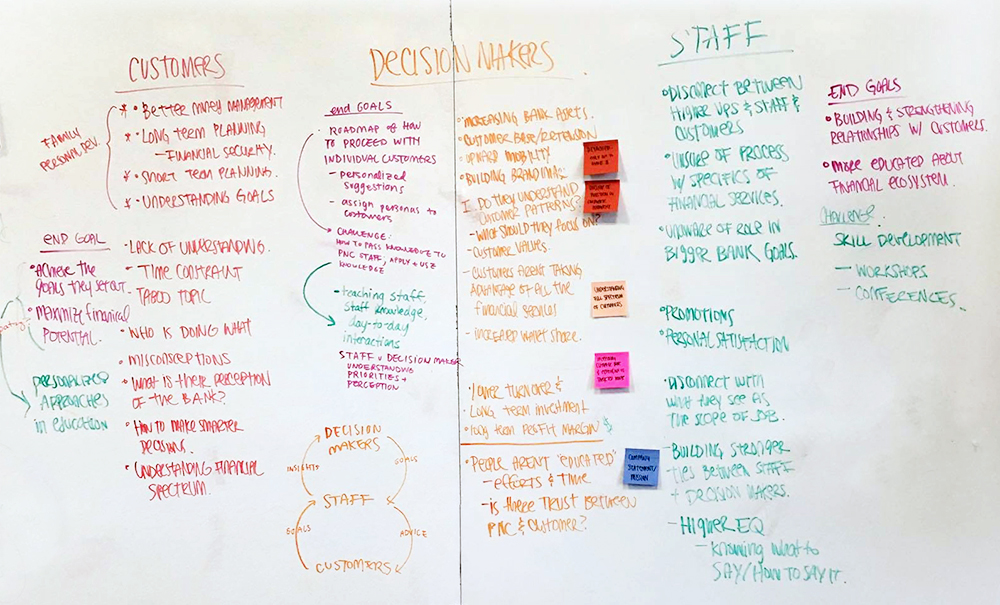 CUSTOMERS
FAMILY
PERSONAL DEV.
* • BETTER MONEY MANAGEMENT
* • LONG TERM PLANNING
- FINANCIAL SECURITY.
* • SHORT TERM PLANNING.
* • UNDERSTANDING GOALS
END GOAL
• ACHIEVE THE
GOALS THEY SET OUT.
• MAXIMIZE FINANCIAL
POTENTIAL.
PERSONALIZED
APPROACHES
in EDUCATION
• LACK OF UNDERSTANDING.
- TIME CONSTRAINT
- TABOO TOPIC
• WHO IS DOING WHAT
• MISCONCEPTIONS
• WHAT IS THEIR PERCEPTION
OF THE BANK?
• HOW TO MAKE SMARTER
DECISIONS.
• UNDERSTANDING FINANCIAL
SPECTRUM.
DECISION MAKERS
END GOALS
• ROADMAP OF HOW
TO PROCEED WITH
INDIVIDUAL CUSTOMERS
- personalized
suggestions
- assign personas to
customers
• CHALLENGE:
HOW TO PASS KNOWLEDGE TO
PNC STAFF, APPLY + USE
KNOWLEDGE
- teaching staff,
staff knowledge.
day-to-day
interactions
STAFF + DECISION MAKER
UNDERSTANDING
PRIORITIES +
PERCEPTION
DECISION
MAKERS
INSIGHTS
GOALS
STAFF
GOALS
ADVICE
CUSTOMERS
• INCREASING BANK ASSETS.
• CUSTOMER BASE/RETENSION
• UPWARD MOBILITY
• BUILDING BRANDING.
DO THEY UNDERSTAND
CUSTOMER PATTERNS?
- WHAT SHOULD THEY FOCUS ON?
- CUSTOMER VALUES.
- CUSTOMERS ARENT TAKING
ADVANTAGE OF ALL THE
financial services
- INCREASED WALLET SHARE.
UNDERSTANDING
FULL SPECTRUM
OF CUSTOMERS
• LOWER TURNOVER &
LONG TERM INVESTMENT
• long term PROFIT MARGIN $
• PEOPLE ARENT "EDUCATED"
- efforts & TIME
- is there TRUST BETWEEN
PNC & CUSTOMER?
COMPANY
STATEMENT/
MISSION
STAFF
• DISCONNECT BETWEEN
HIGHER UPS & STAFF &
CUSTOMERS
• UNSURE OF PROCESS
W/ SPECIFICS OF
FINANCIAL SERVICES.
• UNAWARE OF ROLE IN
BIGGER BANK GOALS.
• PROMOTIONS
• PERSONAL SATISFACTION
• DISCONNECT WITH
WHAT THEY SEE AS
THE SCOPE OF JOB.
- BUILDING STRONGER
TIES BETWEEN STAFF
+ DECISION MAKERS.
- HIGHER EQ
- KNOWING WHAT TO
SAY/HOW TO SAY IT.
END GOALS
• BUILDING & STRENGTHENING
RELATIONSHIPS W/ CUSTOMERS.
• MORE EDUCATED ABOUT
FINANCIAL ECOSYSTEM.
CHALLENGE.
SKILL DEVELOPMENT
- WORKSHOPS
- CONFERENCES.